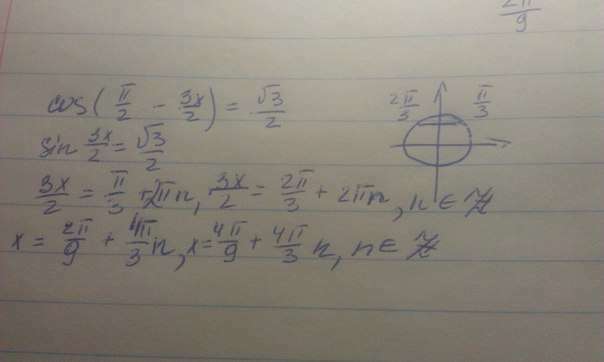 2π/9
cos(π/2 − 3x/2) = √3/2
2π/3 π/3
sin 3x/2 = √3/2
3x/2 = π/3 + 2πn, 3x/2 = 2π/3 + 2πn, n ∈ ℤ
x = 2π/9 + 4π/3 n, x = 4π/9 + 4π/3 n, n ∈ ℤ